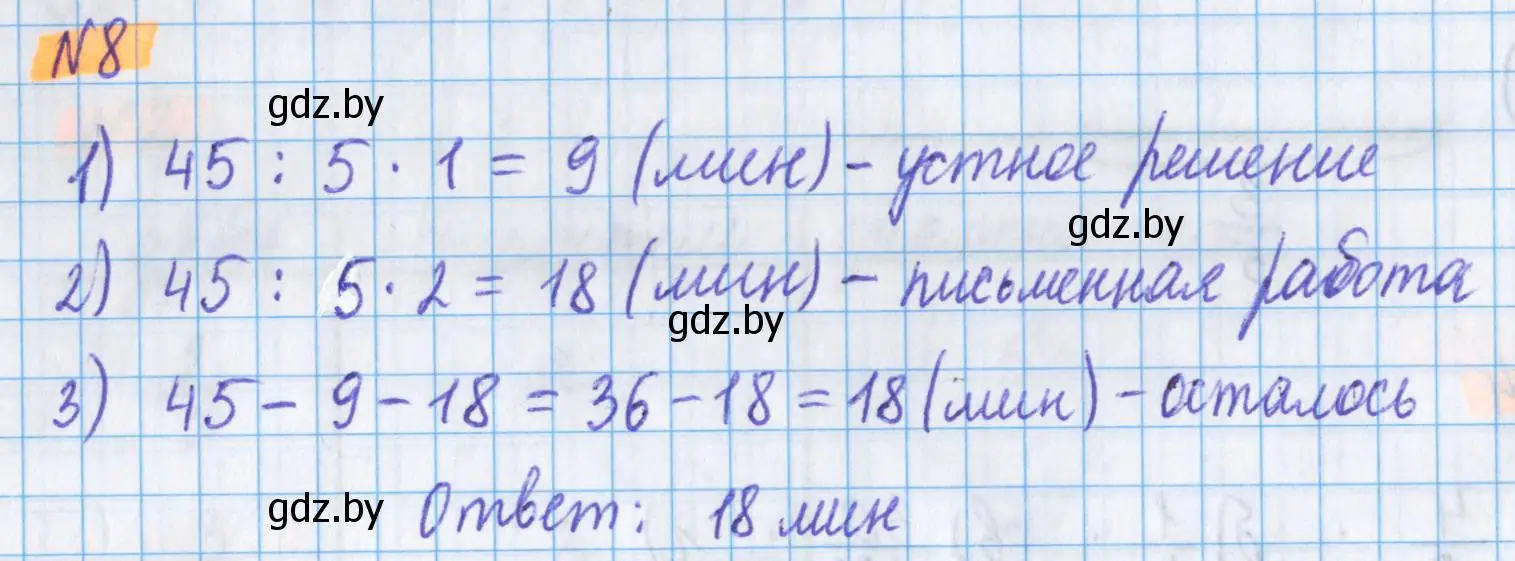 №8
gdz.by
1) 45 : 5 · 1 = 9 (мин) - устное решение
gdz.by
2) 45 : 5 · 2 = 18 (мин) - письменная работа
gdz.by
3) 45 - 9 - 18 = 36 - 18 = 18 (мин) - осталось
gdz.by
Ответ: 18 мин